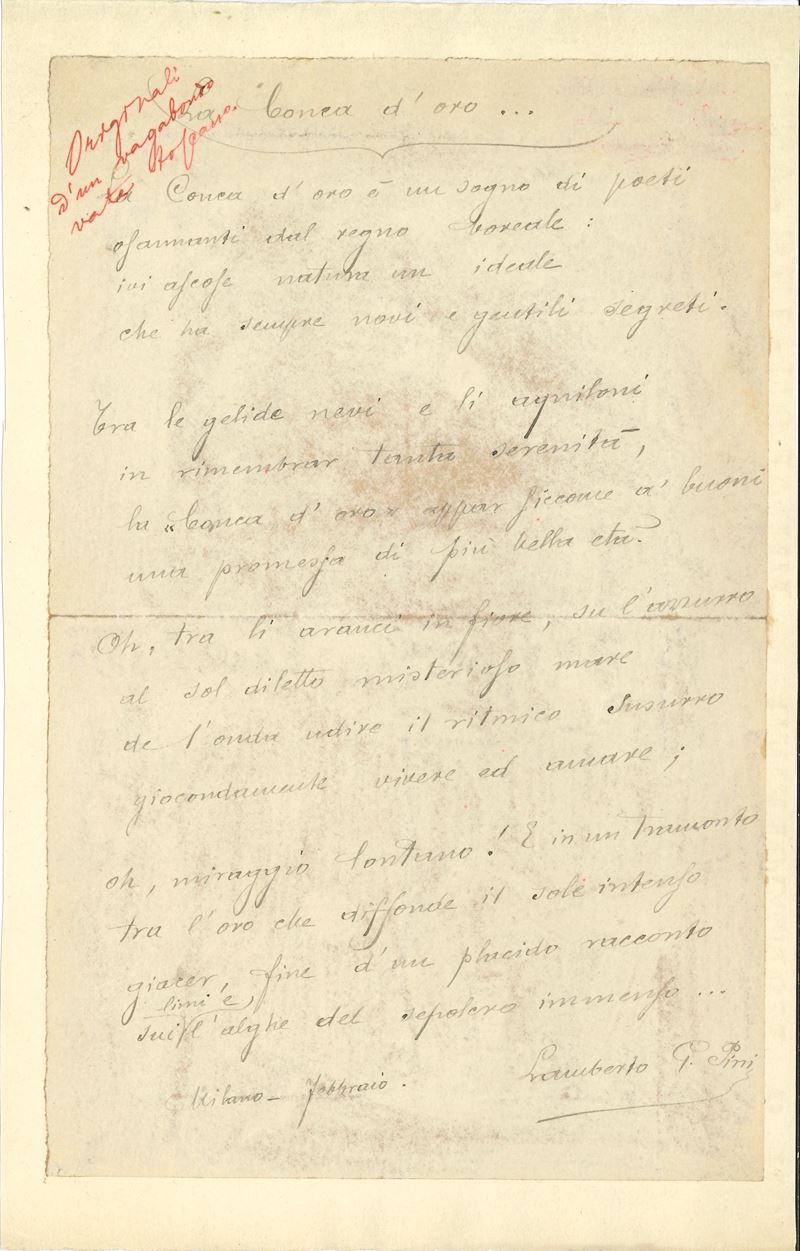 Originali
d'un vagabondo
vate toscano.
La Conca d'oro ...
La Conca d'oro è un sogno di poeti
osannanti dal regno boreale :
ivi ascose natura un ideale
che ha sempre novi e gentili segreti.
Tra le gelide nevi e li aquiloni
in rimembrar tanta serenità,
la „Conca d'oro" appar siccome a' buoni
una promessa di più bella età.
Oh, tra li aranci in fiore, su l'azzurro
al sol diletto misterioso mare
de l'onda udire il ritmico susurro
giocondamente vivere ed amare ;
oh, miraggio lontano! E in un tramonto
tra l'oro che diffonde il sole intenso
giacer, fine d'un placido racconto
limi e,
sui l'alghe del sepolcro immenso ...
Milano - febbraio.
Lamberto G. Pini